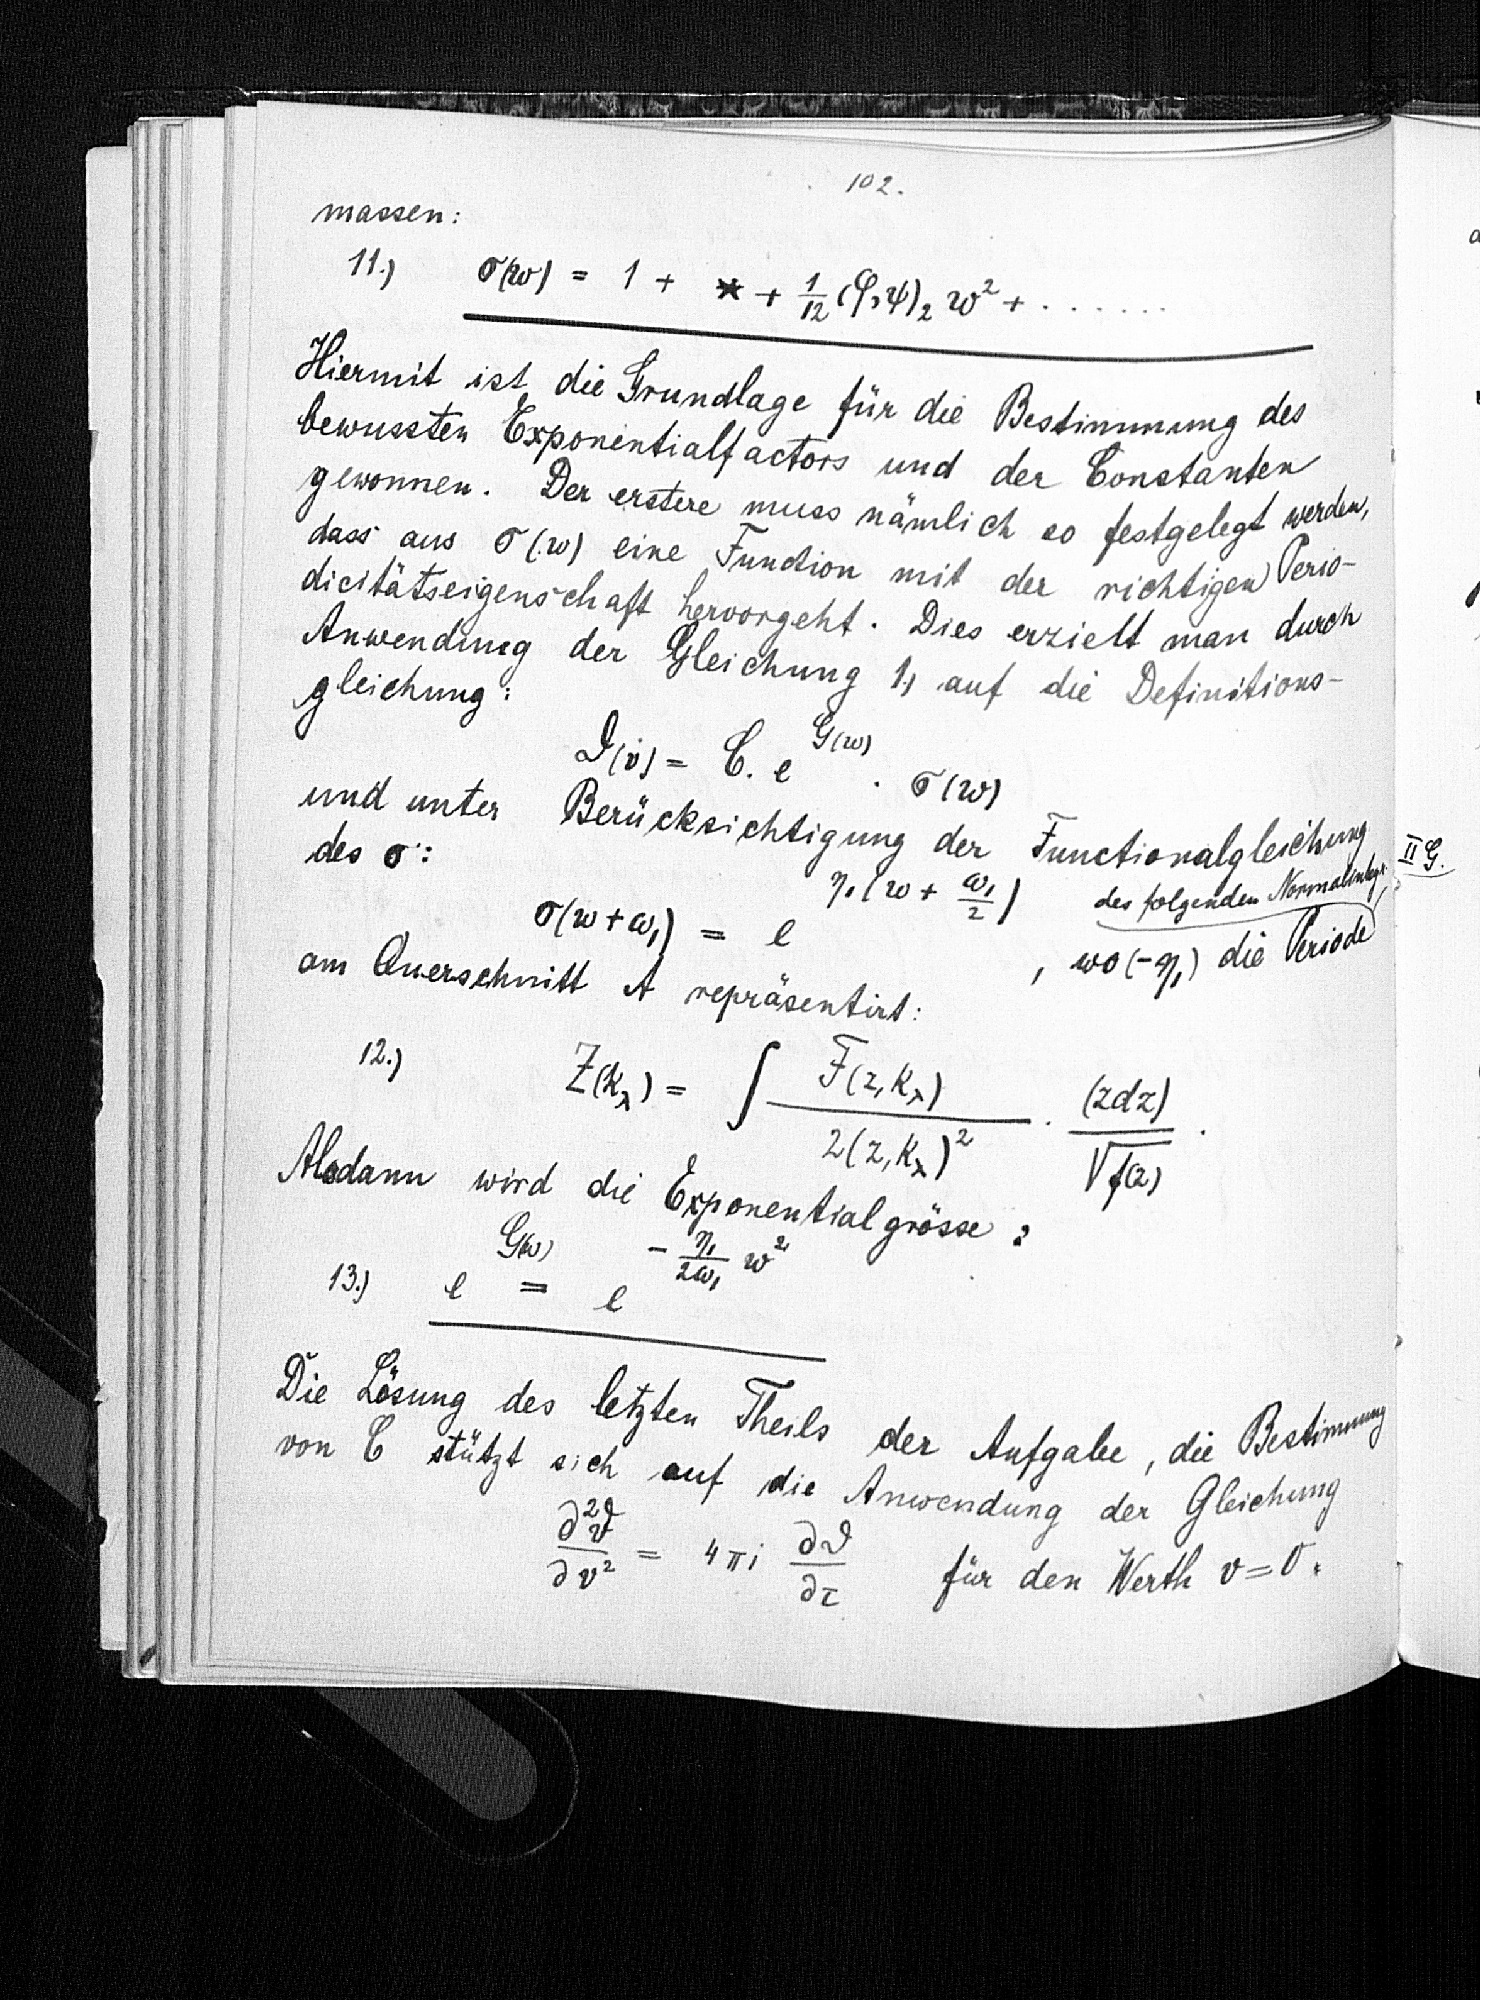 102.
massen:
11.) σ(w) = 1 + * + 1/12 (φ,ψ)₂ w² + . . . . . . .
Hiermit ist die Grundlage für die Bestimmung des
bewussten Exponentialfactors und der Constanten
gewonnen. Der erstere muss nämlich so festgelegt werden,
dass aus σ(w) eine Function mit der richtigen Perio-
dicitätseigenschaft hervorgeht. Dies erzielt man durch
Anwendung der Gleichung 1.) auf die Definitions-
gleichung:
ϑ(v) = C. e^{G(w)} . σ(w)
und unter Berücksichtigung der Functionalgleichung
des σ:
σ(w+ω₁) = e^{η₁(w + ω₁/2)}, wo (-η₁) die Periode
des folgenden Normalintegr. II G.
am Querschnitt A repräsentirt:
12.) Z(k_λ) = ∫ F(z,k_λ) / 2(z,k_λ)² . (zdz) / √f(z) .
Alsdann wird die Exponentialgrösse:
13.) e^{G(w)} = e^{-η₁/2ω₁ w²}
Die Lösung des letzten Theils der Aufgabe, die Bestimmung
von C stützt sich auf die Anwendung der Gleichung
∂²ϑ/∂v² = 4πi ∂ϑ/∂τ für den Werth v=0.